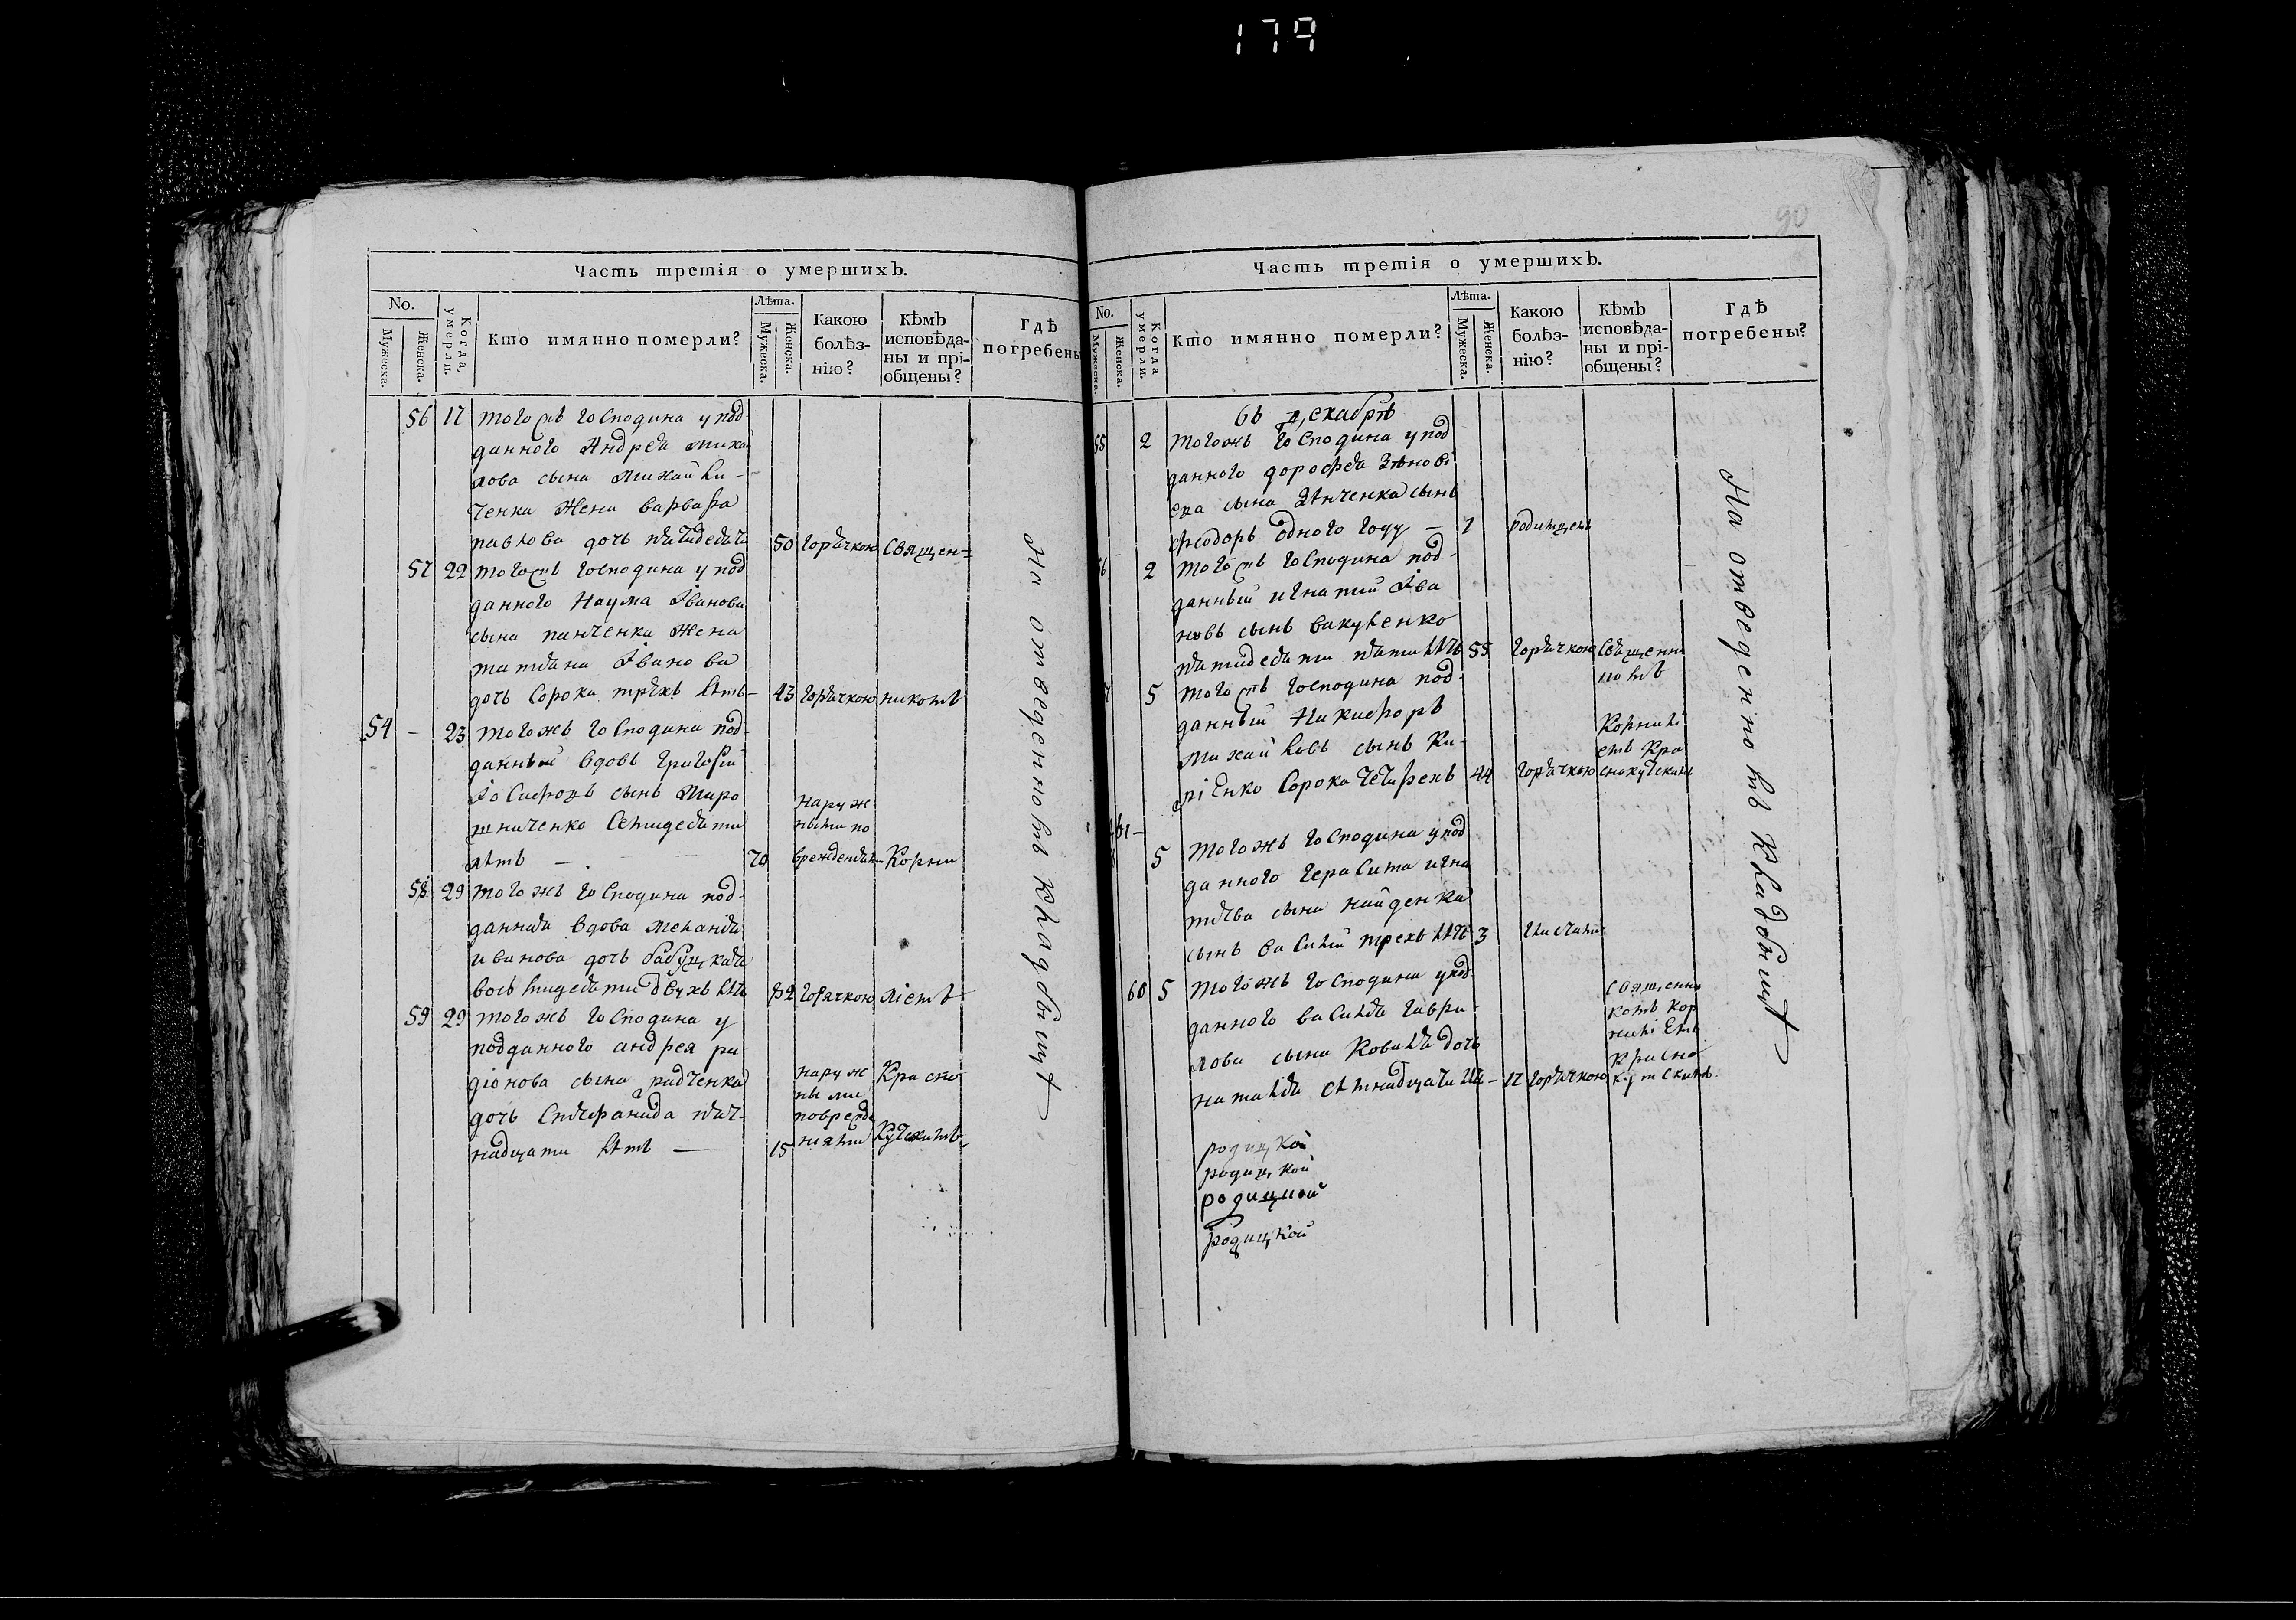 179
90
Часть третія о умершихЪ.
No.
Мужеска.
Женска.
Когда, умерли.
Кто имянно померли?
Лѣта.
Мужеска.
Женска.
Какою болѣз-
нію?
КѢмЪ
исповѢда-
ны и прі-
общены?
ГдѢ
погребены
56 17 тогожъ господина у под
данного Андрея михай
лова сына михайли-
ченка жена варвара
павлова дочь пятидесяти 50 горячкою священ=
57 22 тогожъ господина у под
данного Наума Іванова
сына панченка жена
татяна Іванова
дочь сорока трехъ летъ - 43 горячкою никомъ
54 - 23 тогожъ господина под-
данный вдовъ григорій
Іосифовъ сынъ миро
шниченко семидесяти
летъ — 70
наруж
ными по
врежденіям
Корни
58 29 тогожъ господина под-
данная вдова меланія
иванова дочь
восьмидесяти двухъ летъ 82 горячкою ліемъ
59 29 тогожъ господина у
подданного андрея ра
діонова сына радченка
дочь стефанида пят-
надцати летъ — 15
наруж
ны ми
поврежде
ніями
Красно
Кутскимъ
на отведенномъ Кладбищѣ
Часть третія о умершихЪ.
No.
Мужеска.
Женска.
Когда умерли.
Кто имянно померли?
Лѣта.
Мужеска.
Женска.
Какою
болѢз-
нію?
КѢмЪ
исповѢда-
ны и прі-
общены?
ГдѢ
погребены?
въ декабрѣ
55 2 тогожъ господина у под
данного дорофея Зѣнові
ева сына Зѣнченка сынъ
феодоръ одного году — 1 родимцемъ
2 тогожъ господина под-
данный игнатий Ива
новъ сынъ вакуленко
пятидесяти пяти летъ 55 горячкою священни
комъ
5 тогожъ господина под-
данный Никифоръ
михайловъ сынъ Ки-
ріенко сорока четирехъ 44 горячкою
Корнилі
емъ Кра
снокутскимъ
5 тогожъ господина у под
данного герасима игна
тиева сына найденка
сынъ василий трехъ летъ 3
60 5 тогожъ господина у под
данного василя гаври-
лова сына Коваля дочь
наталія семнадцати ле - 17 горячкою
священни
комъ Кор
ниліемъ
Красно
кутскимъ
родицкой
родицкой
родицкой
родицкой
На отведенномъ Кладбищѣ